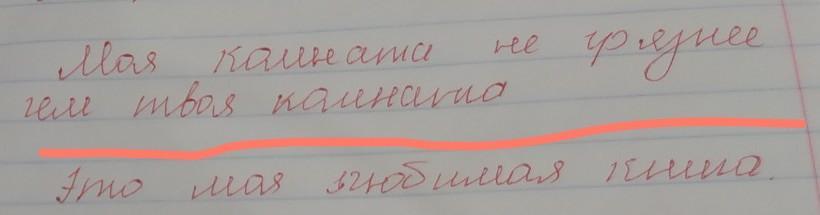 Моя комната не грязнее
чем твоя комната
Это моя любимая книга.